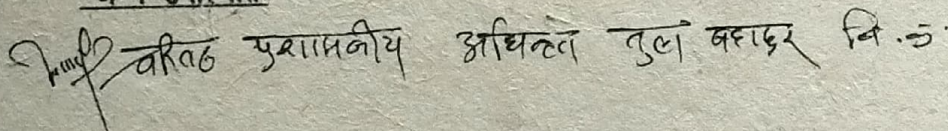 वरिष्ठ प्रशासकीय अधिकृत तुल बहादुर वि.क.